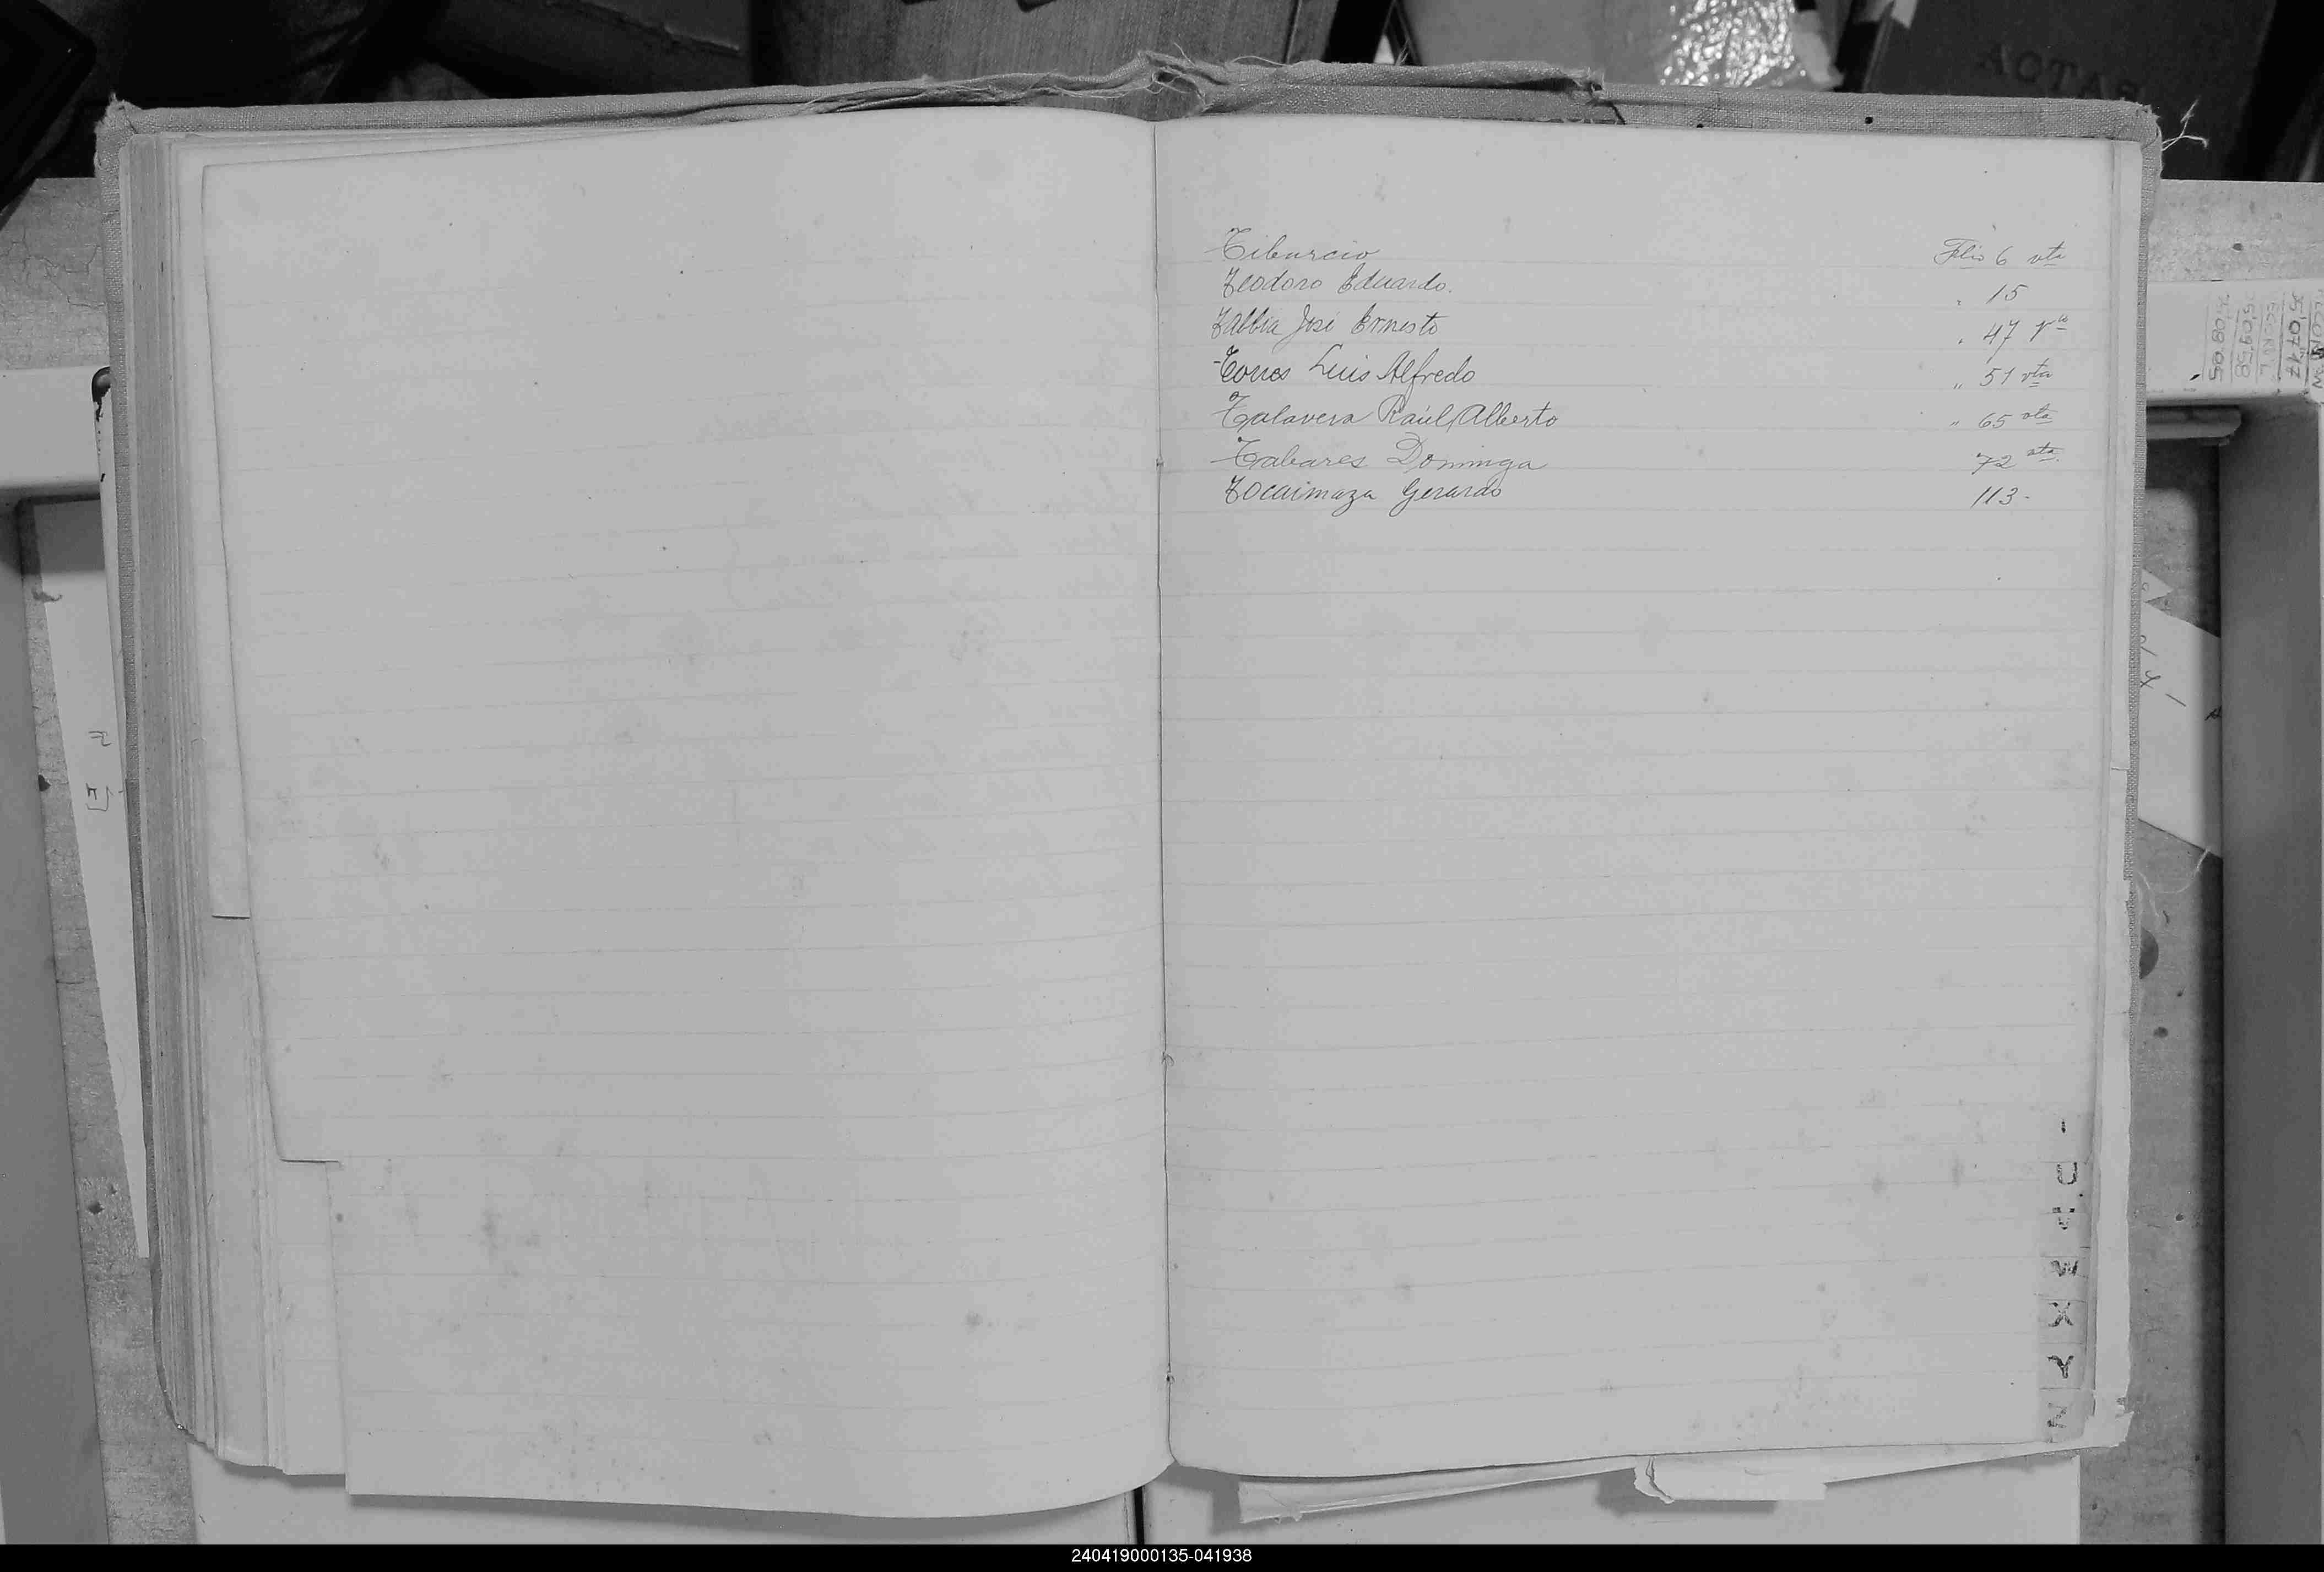 Tiburcio Folio 6 vta
Teodoro Eduardo. " 15
Tabbia José Ernesto " 47 vta
Torres Luis Alfredo " 51 vta
Talavera Raúl Alberto " 65 vta
Tabares Dominga 72 vta.
Tocaimaza Gerardo 113-
U
W
X
Y
Z
240419000135-041938